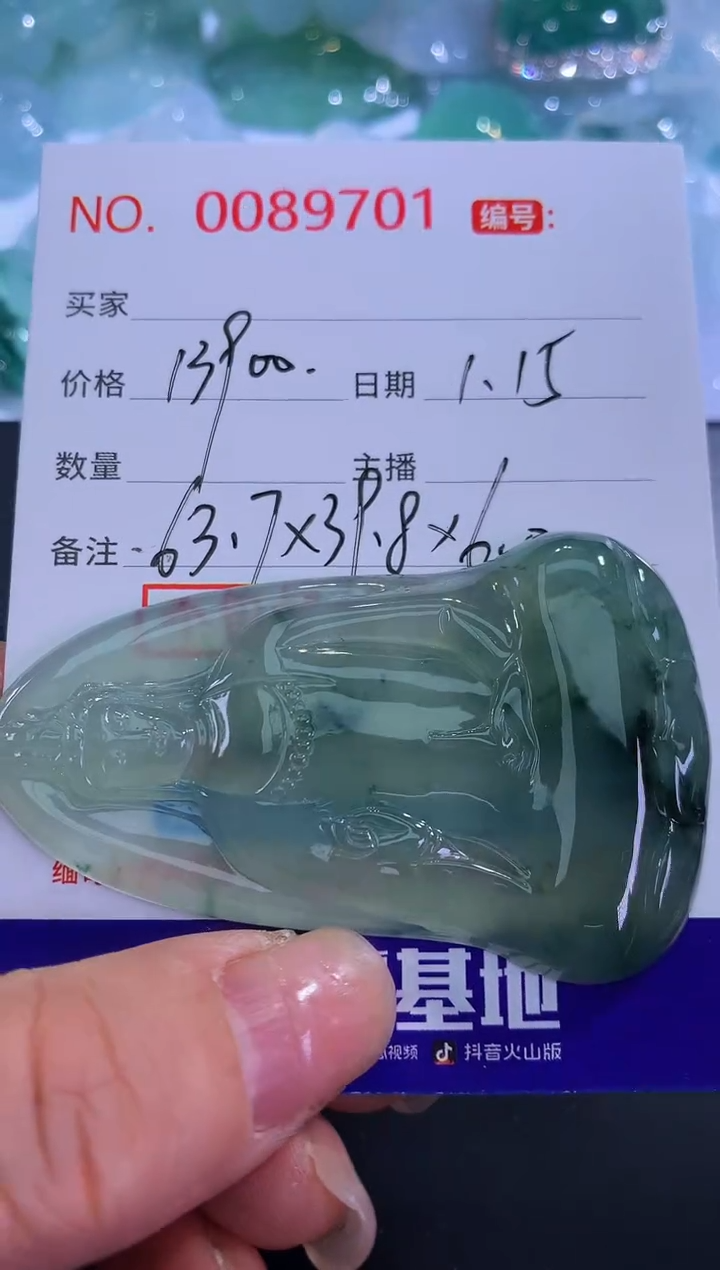 NO. 0089701 编号:
买家
价格 13900. 日期 1.15
数量 主播
备注 63.7×39.8×6
缅
基地
视频 抖音火山版